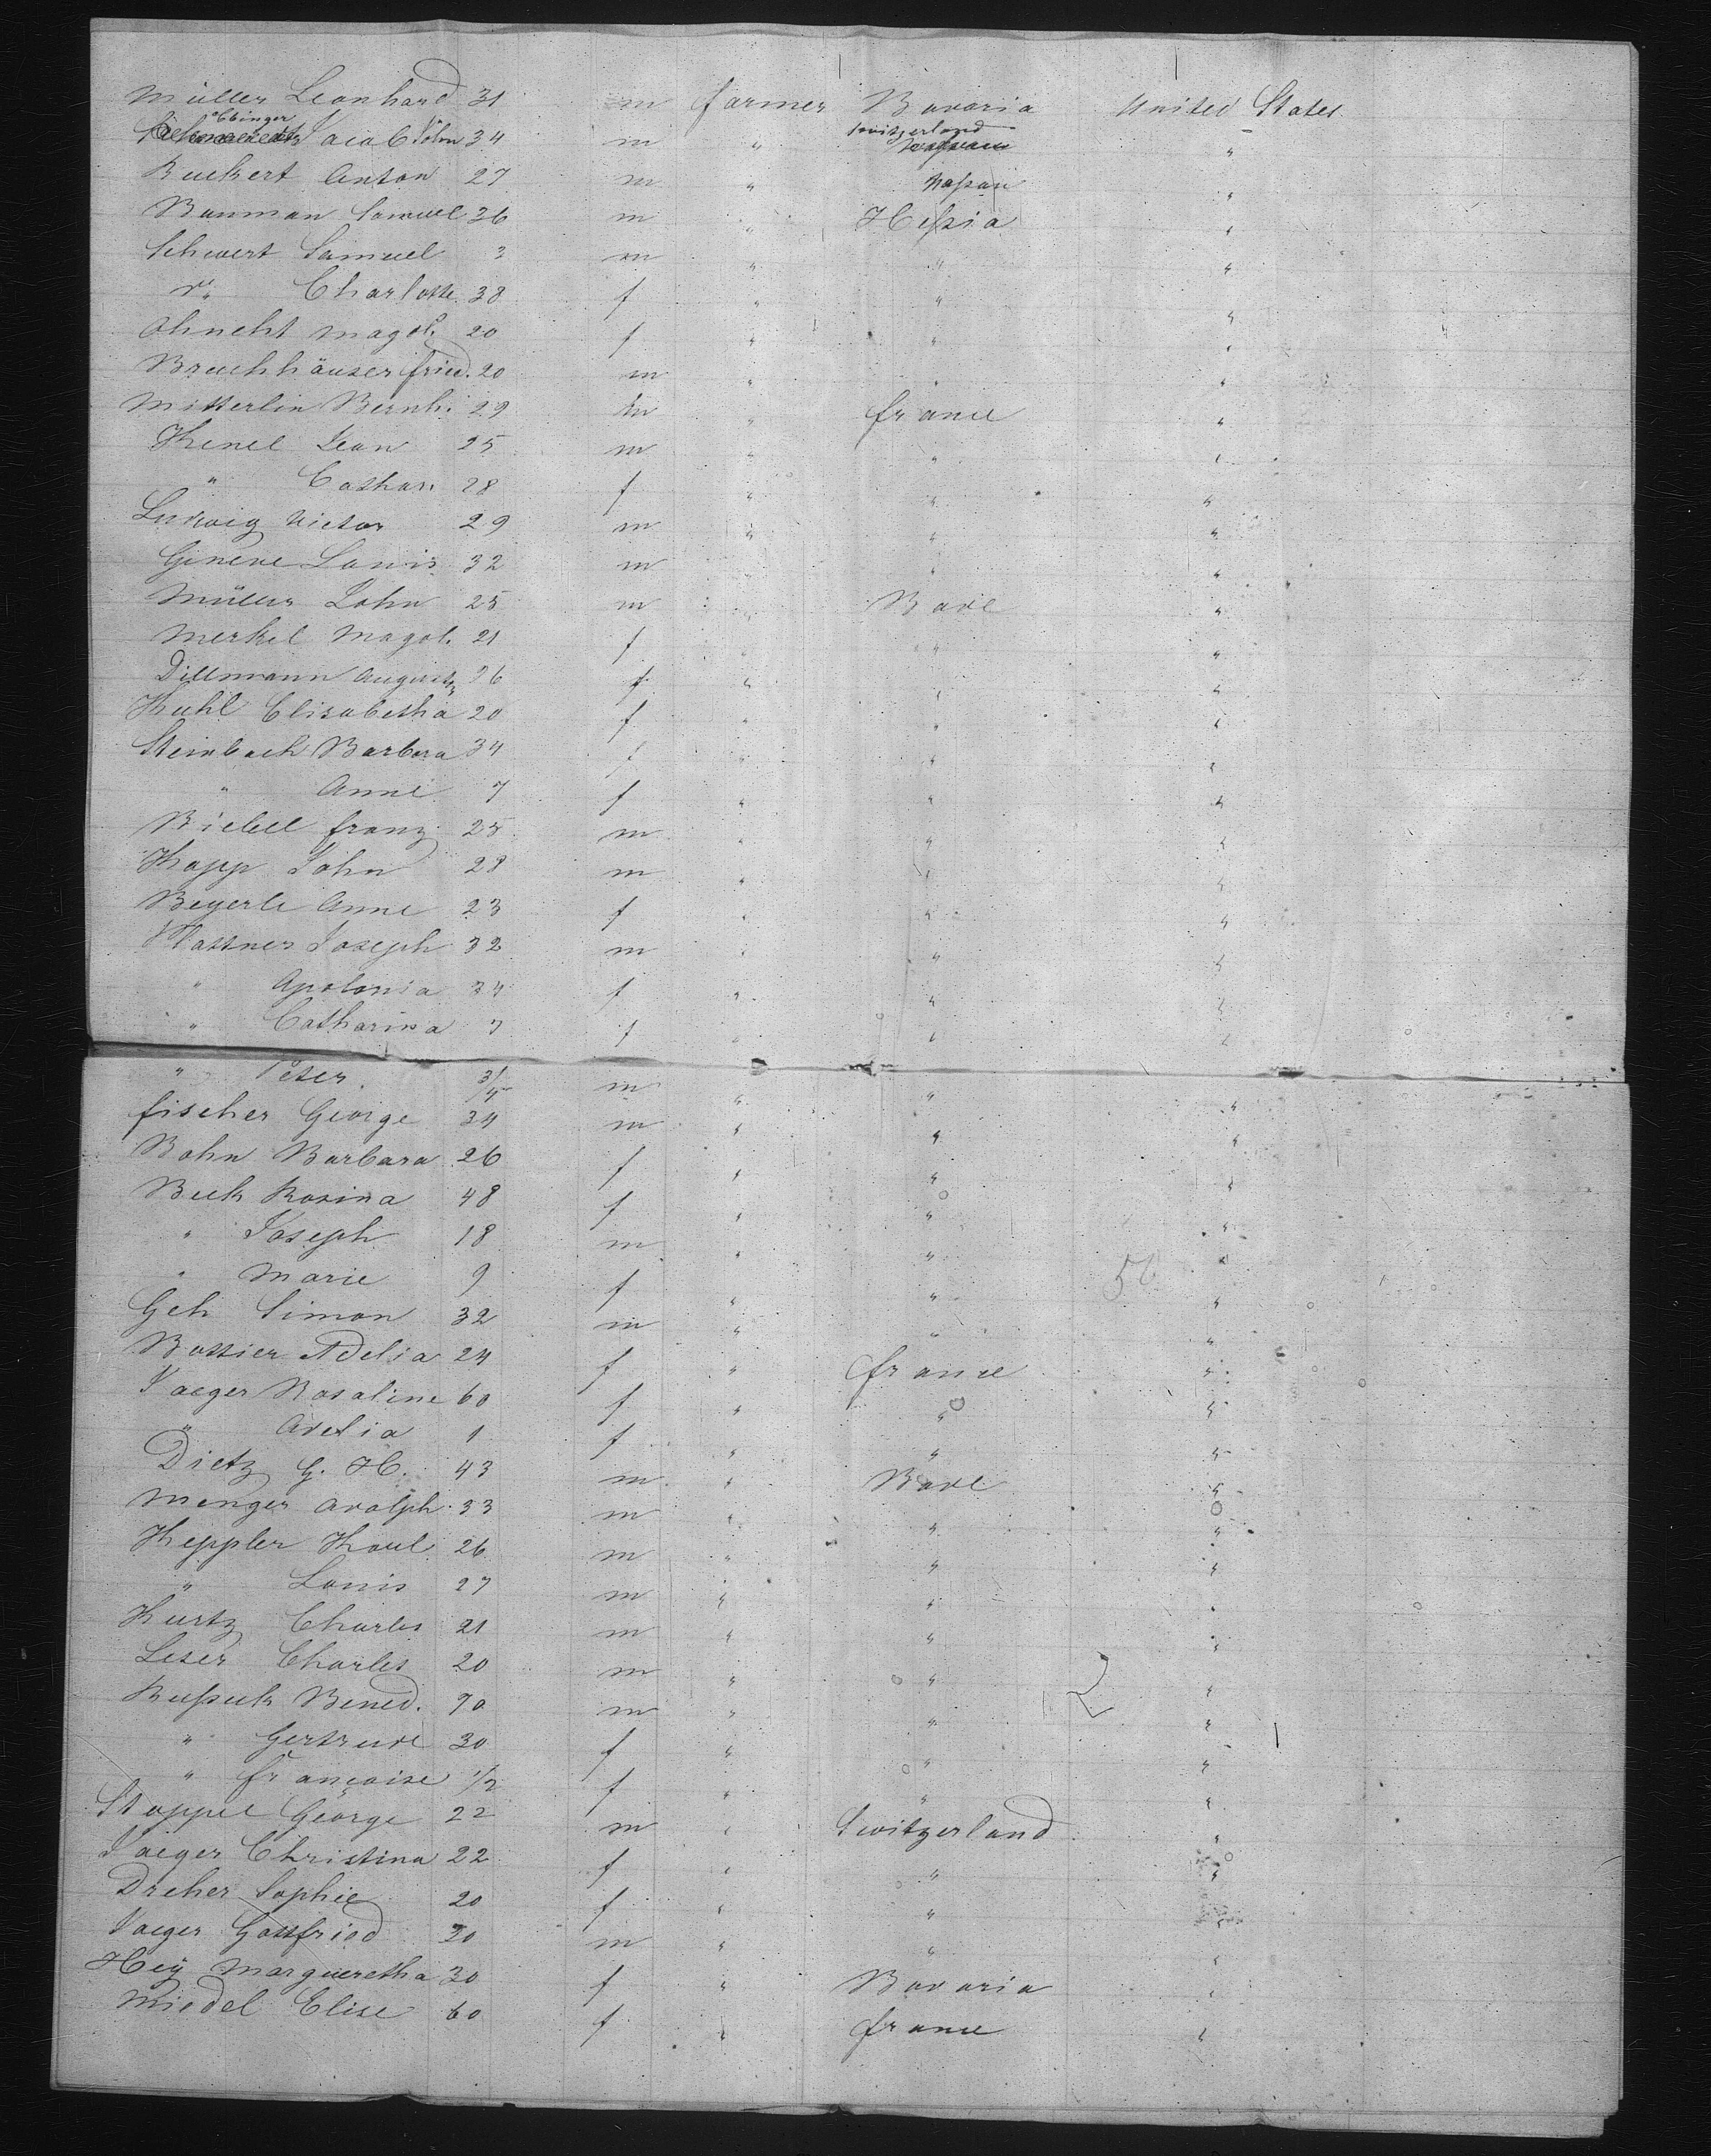 Müller Leonhard 31 m farmer Bavaria United States
Ebinger Switzerland
Jacob John 34 m " "
Ruckert Anton 27 m " Naßau "
Bauman Samuel 36 m " Heßia "
Schwert Samuel 3 m " " "
" Charlotte 38 f " " "
Ohneht Magd. 20 f " " "
Bruchhäuser fried. 20 m " " "
Mitterlin Bernh. 29 m " france "
Kenel Jean 25 m " " "
" Cathar. 28 f " " "
Ludwig Victor 29 m " " "
Geneve Louis 32 m " " "
Müller John 25 m " Bade "
Merkel Magd. 21 f " " "
Dillmann August 26 f " " "
Kuhl Elisabetha 20 f " " "
Steinbach Barbara 34 f " " "
" Anne 7 f " " "
Riebel franz 25 m " " "
Kapp John 28 m " " "
Beyerle Anne 23 f " " "
Joseph 32 m " " "
" Apolonia 34 f " " "
" Catharina 7 f " " "
" Peter 3/4 m " " "
fischer George 34 m " " "
Bohn Barbara 26 f " " "
Beck Rosina 48 f " " "
" Joseph 18 m " " "
" Marie 9 f " " "
Geh Simon 32 m " " "
Bossier Adelia 24 f " france "
Jaeger Rosaline 60 f " " "
" Adelia 1 f " " "
Dietz G. H. 43 m " Bade "
Menger Adolph 33 m " " "
Keppler Karl 26 m " " "
" Louis 27 m " " "
Kurtz Charles 21 m " " "
Leser Charles 20 m " " "
Rußuck Bened. 70 m " " "
" Gertrude 30 f " " "
" Françoise 1/2 f " " "
Stoppel George 22 m " Switzerland "
Jaeger Christina 22 f " " "
Dreher Sophie 20 f " " "
Jaeger Gottfried 20 m " " "
Hey Margueretha 30 f " Bavaria "
Miedel Elise 60 f " france "